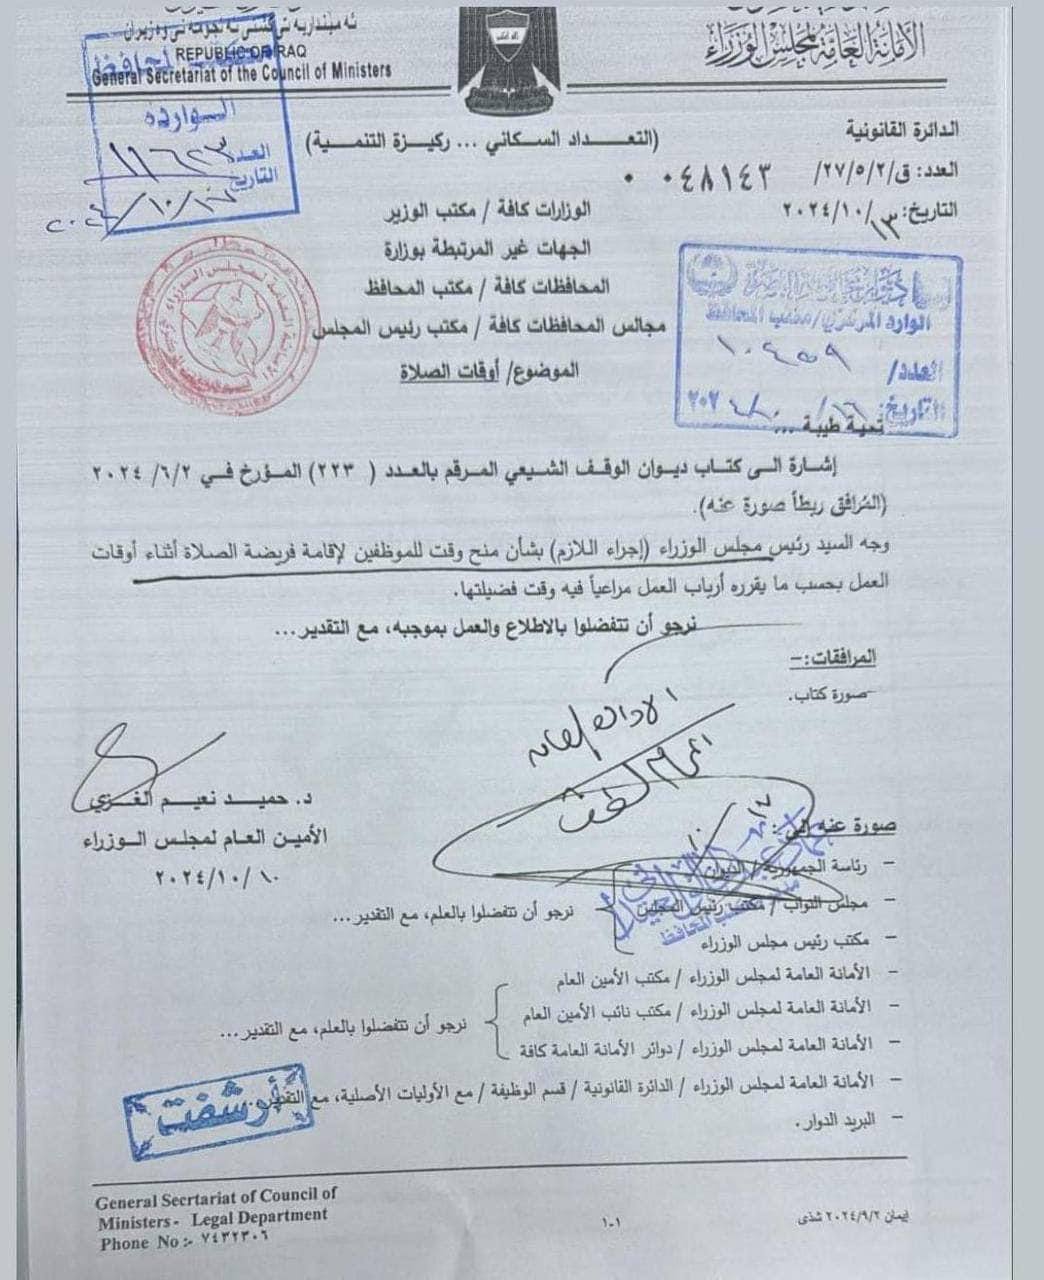 REPUBLIC OF IRAQ
General Secretariat of the Council of Ministers
الأمانة العامة لمجلس الوزراء
الواردة
العدد ١١٦٢٣
التاريخ
الدائرة القانونية
(التعـــداد السـكـاني ... ركـيـزة التنمـيـة)
العدد: ق/٢/٥/٢٧/ ٠٤٨١٤٣
التاريخ: ٢٠٢٤/١٠/١٣
الوزارات كافة / مكتب الوزير
الجهات غير المرتبطة بوزارة
المحافظات كافة / مكتب المحافظ
مجالس المحافظات كافة / مكتب رئيس المجلس
الموضوع/ أوقات الصلاة
العدد/
التاريخ:
تحية طيبة ...
إشارة الى كتاب ديوان الوقف الشيعي المرقم بالعدد ( ٢٢٣) المؤرخ في ٢٠٢٤/٦/٢
(المُرافق ربطاً صورة عنه).
وجه السيد رئيس مجلس الوزراء (إجراء اللازم) بشأن منح وقت للموظفين لإقامة فريضة الصلاة أثناء أوقات
العمل بحسب ما يقرره أرباب العمل مراعياً فيه وقت فضيلتها.
نرجو أن تتفضلوا بالاطلاع والعمل بموجبه، مع التقدير...
المرافقات:-
-صورة كتاب.
د. حميــد نعيــم الغــزي
الأمين العام لمجلس الـوزراء
٢٠٢٤/١٠/١٠
صورة عنه الى:
- رئاسة الجمهورية / الديوان
- مجلس النواب / مكتب رئيس المجلس
نرجو أن تتفضلوا بالعلم، مع التقدير...
- مكتب رئيس مجلس الوزراء
- الأمانة العامة لمجلس الوزراء / مكتب الأمين العام
- الأمانة العامة لمجلس الوزراء / مكتب نائب الأمين العام
نرجو أن تتفضلوا بالعلم، مع التقدير...
- الأمانة العامة لمجلس الوزراء / دوائر الأمانة العامة كافة
- الأمانة العامة لمجلس الوزراء / الدائرة القانونية / قسم الوظيفة / مع الأوليات الأصلية، مع التقدير.
- البريد الدوار.
أرشفت
General Secrtariat of Council of
Ministers - Legal Department
Phone No :- ٧٤٣٢٣٠٦
١-١
ايمان ٢٠٢٤/٩/٢ شذى